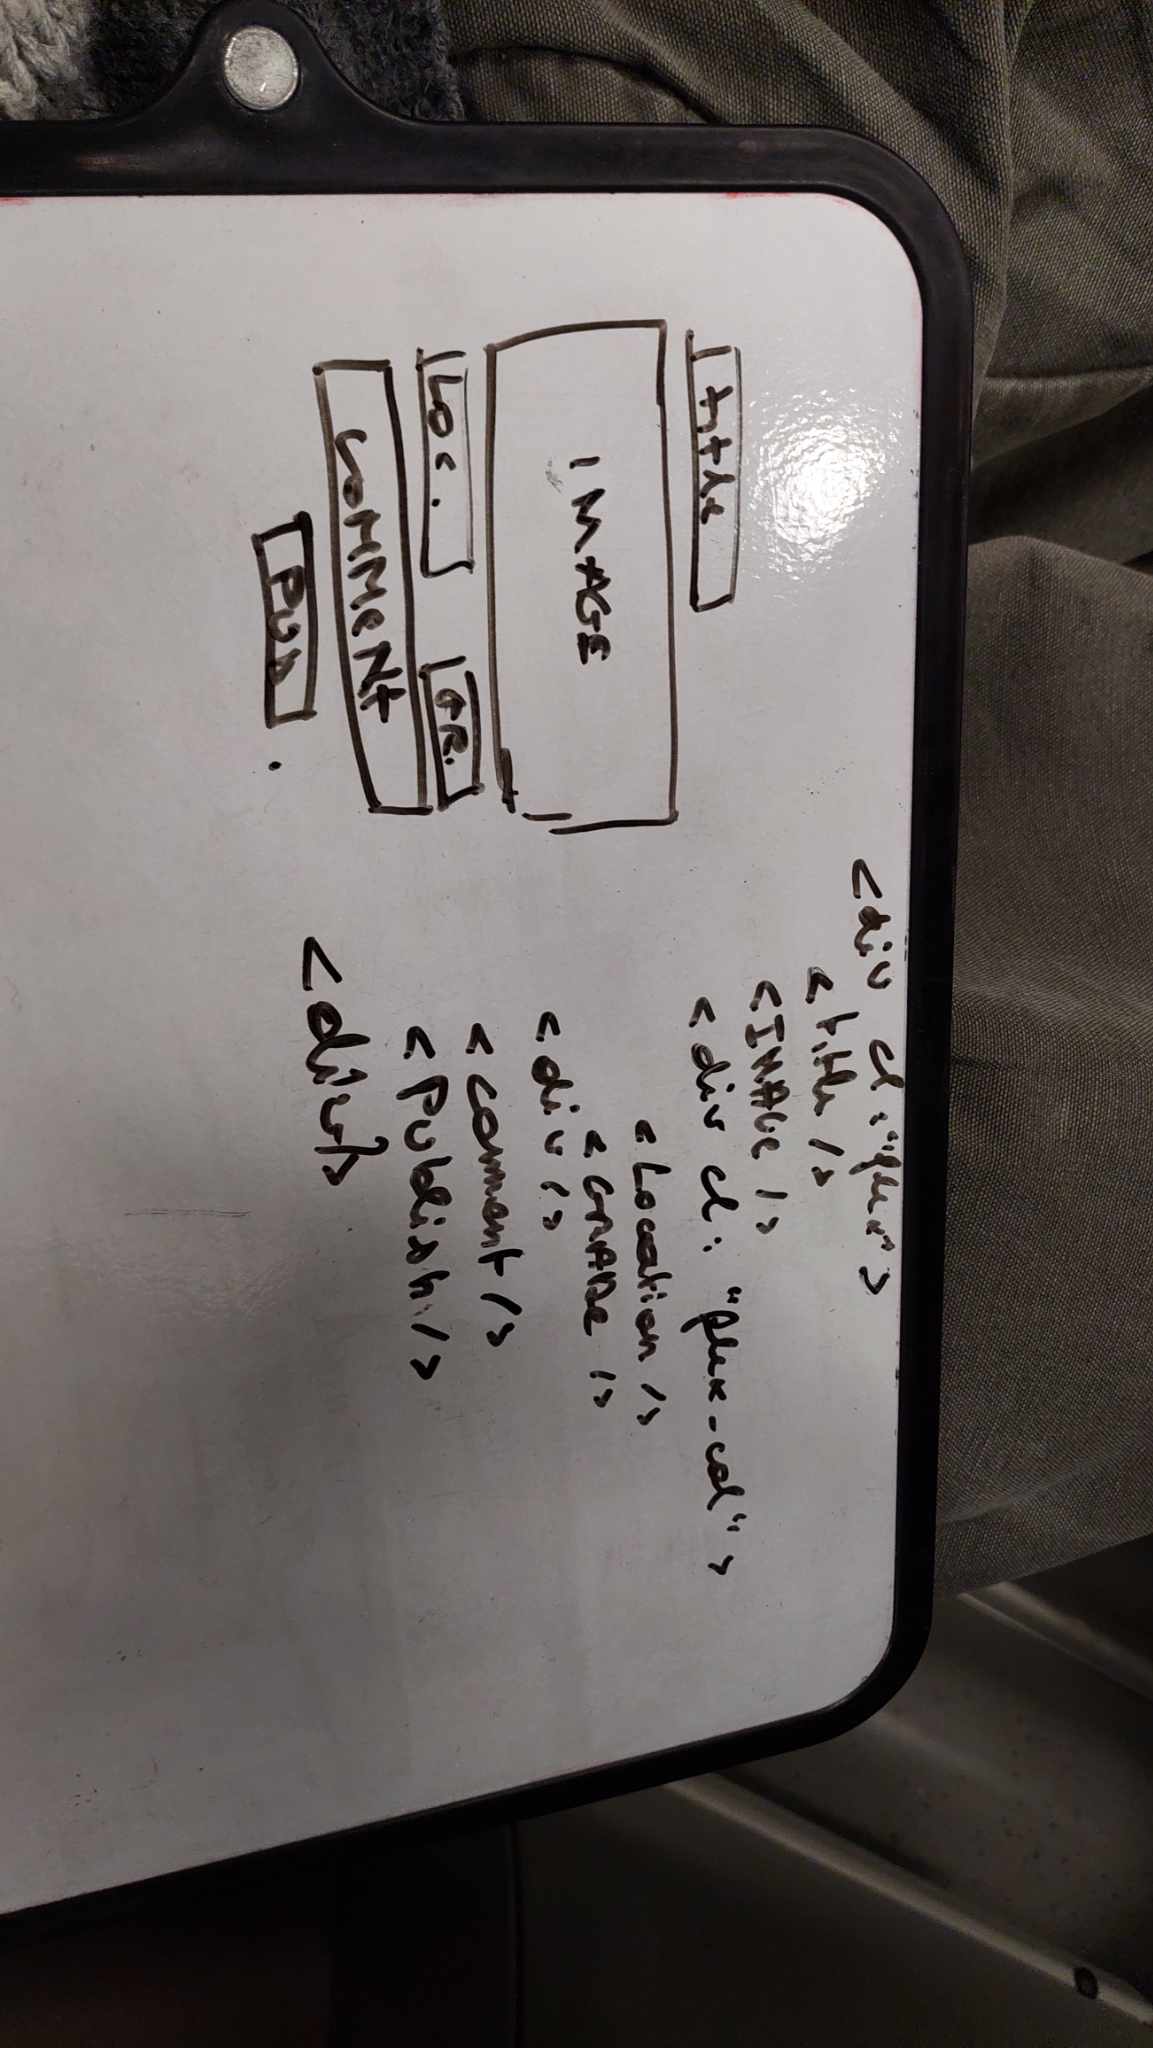 title
IMAGE
Loc.
GR.
COMMeNt
PUB
<div cl:"flex">
<title/>
<IMAGe/>
<div cl: "flex-col">
<Location/>
<GRADe/>
<div/>
<comment/>
<Publish/>
<div/>